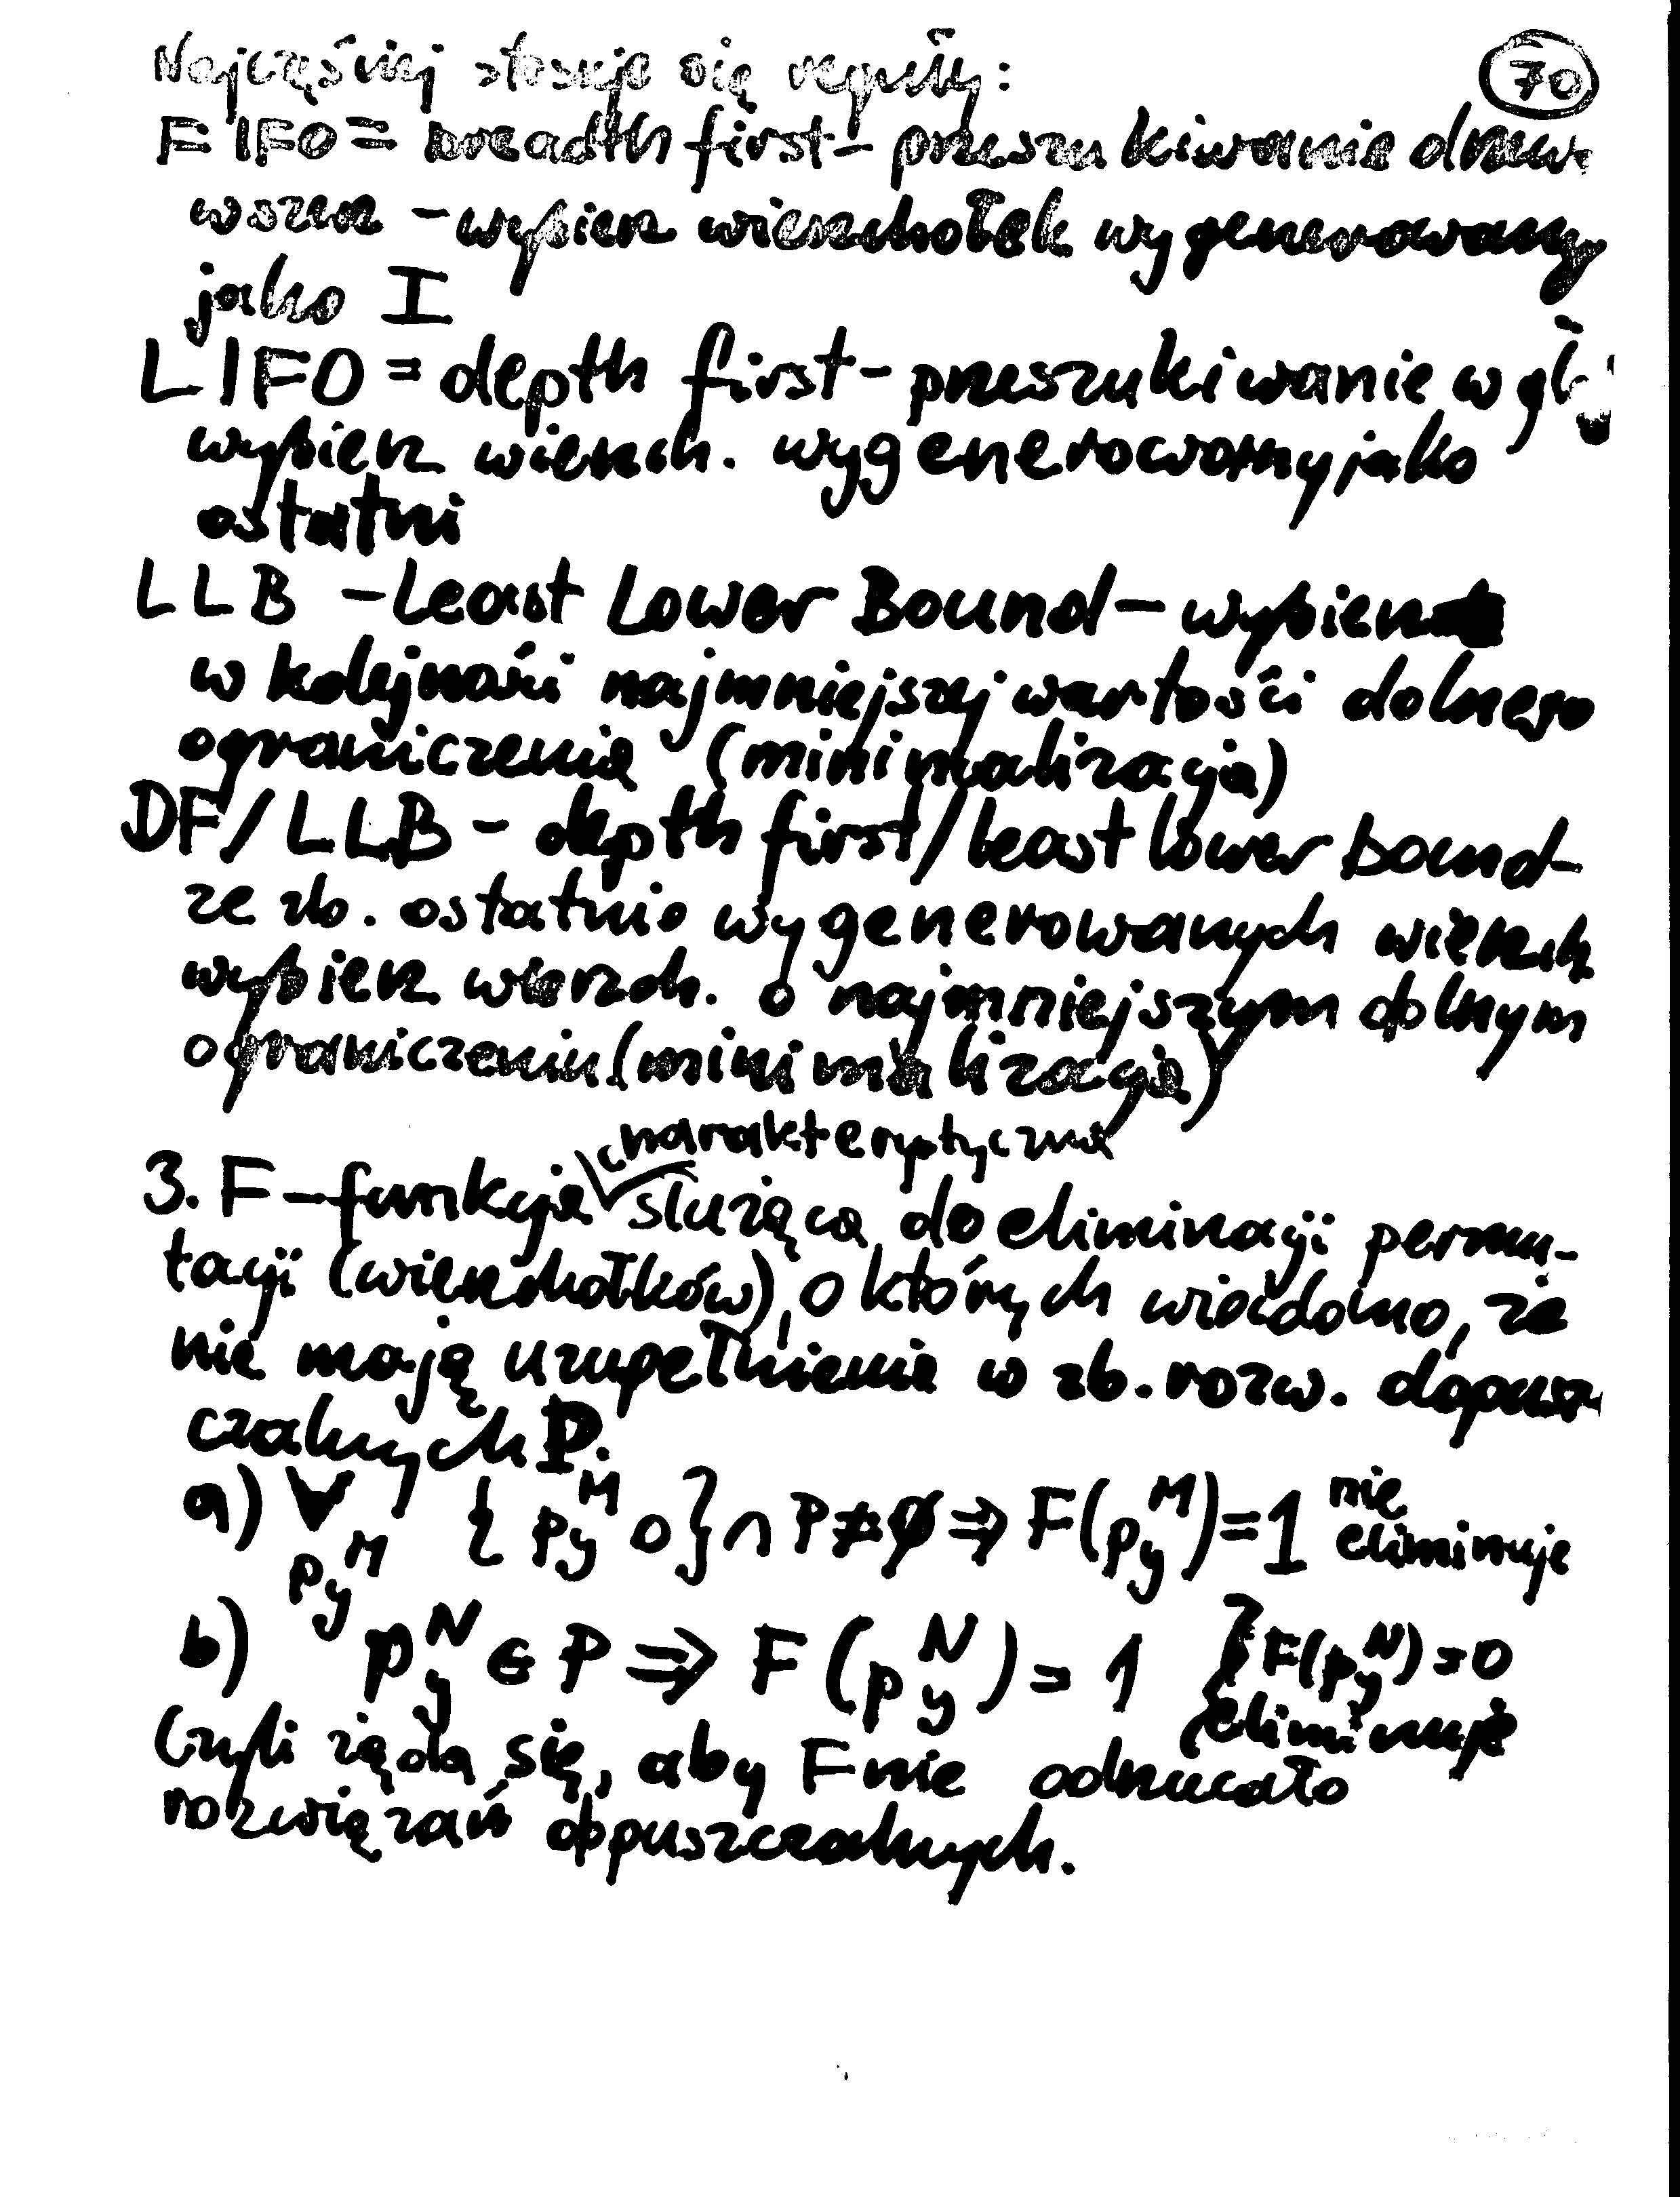 Najczęściej stosuje się reguły:
70
FIFO = breadth first - przeszukiwanie drzewa
wszerz - wybierz wierzchołek wygenerowany
jako I
LIFO = depth first - przeszukiwanie w głąb
wybierz wierzch. wygenerowany jako
ostatni
LLB - Least Lower Bound - wybierz
w kolejności najmniejszej wartości dolnego
ograniczenia (minimalizacja)
DF/LLB - depth first/least lower bound -
ze zb. ostatnio wygenerowanych wierzch.
wybierz wierzch. o najmniejszym dolnym
ograniczeniu (minimalizacja)
charakterystyczna
3. F - funkcja służąca do eliminacji permu-
tacji (wierzchołków), o których wiadomo, że
nie mają uzupełnienia w zb. rozw. dopusz-
czalnych P.
a) ∀ { p_y^M ∘ } ∩ P ≠ ∅ ⇒ F(p_y^M) = 1 nie eliminuje
p_y^M
b) p_y^N ∈ P ⇒ F(p_y^N) = 1 F(p_y^N) = 0
eliminuje
Czyli żąda się, aby F nie odrzucało
rozwiązań dopuszczalnych.